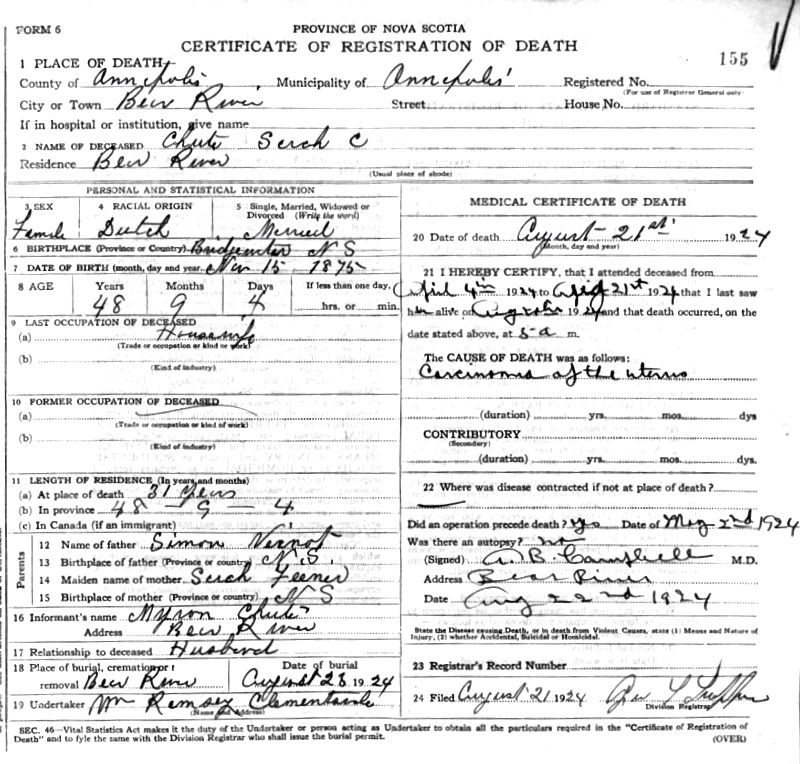 FORM 6
PROVINCE OF NOVA SCOTIA
CERTIFICATE OF REGISTRATION OF DEATH
155
1 PLACE OF DEATH
County of Annapolis, Municipality of Annapolis Registered No.
(For use of Registrar General only
City or Town Bear River Street House No.
If in hospital or institution, give name
2 NAME OF DECEASED Chute Serah C
Residence Bear River
(Usual place of abode)
PERSONAL AND STATISTICAL INFORMATION
3 SEX 4 RACIAL ORIGIN 5 Single, Married, Widowed or Divorced (Write the word)
Female Dutch Married
6 BIRTHPLACE (Province or Country) Bridgewater N S
7 DATE OF BIRTH (month, day and year Nov 15 1875
8 AGE Years Months Days If less than one day,
48 9 4 hrs. or min.
9 LAST OCCUPATION OF DECEASED
(a) Housewife
(Trade or occupation or kind of work)
(b)
(Kind of industry)
10 FORMER OCCUPATION OF DECEASED
(a)
(Trade or occupation or kind of work)
(b)
(Kind of industry)
11 LENGTH OF RESIDENCE (In years and months)
(a) At place of death 31 years
(b) In province 48 - 9 - 4
(c) In Canada (if an immigrant)
Parents
12 Name of father Simon Vernot
13 Birthplace of father (Province or country) N.S.
14 Maiden name of mother Serah Feener
15 Birthplace of mother (Province or country) N S
16 Informant's name Myron Chute
Address Bear River
17 Relationship to deceased Husband
18 Place of burial, cremation or removal Bear River Date of burial August 23 1924
19 Undertaker Wm Ramsey Clementsvale
(Name and Address)
MEDICAL CERTIFICATE OF DEATH
20 Date of death August 21st 1924
(Month, day and year)
21 I HEREBY CERTIFY, that I attended deceased from
April 4th 1924 to Aug 21st 1924 that I last saw
her alive on Aug 1924 and that death occurred, on the
date stated above, at 5 a m.
The CAUSE OF DEATH was as follows:
Carcinoma of the uterus
(duration) yrs. mos. dys
CONTRIBUTORY
(Secondary)
(duration) yrs. mos. dys
22 Where was disease contracted if not at place of death?
Did an operation precede death? Yes Date of May 2nd 1924
Was there an autopsy? no
(Signed) A. B. Campbell M.D.
Address Bear River
Date Aug 22nd 1924
State the Disease causing Death, or in death from Violent Causes, state (1) Means and Nature of Injury, (2) whether Accidental, Suicidal or Homicidal.
23 Registrar's Record Number
24 Filed August 21 1924
Division Registrar
SEC. 46—Vital Statistics Act makes it the duty of the Undertaker or person acting as Undertaker to obtain all the particulars required in the "Certificate of Registration of
Death" and to fyle the same with the Division Registrar who shall issue the burial permit. (OVER)